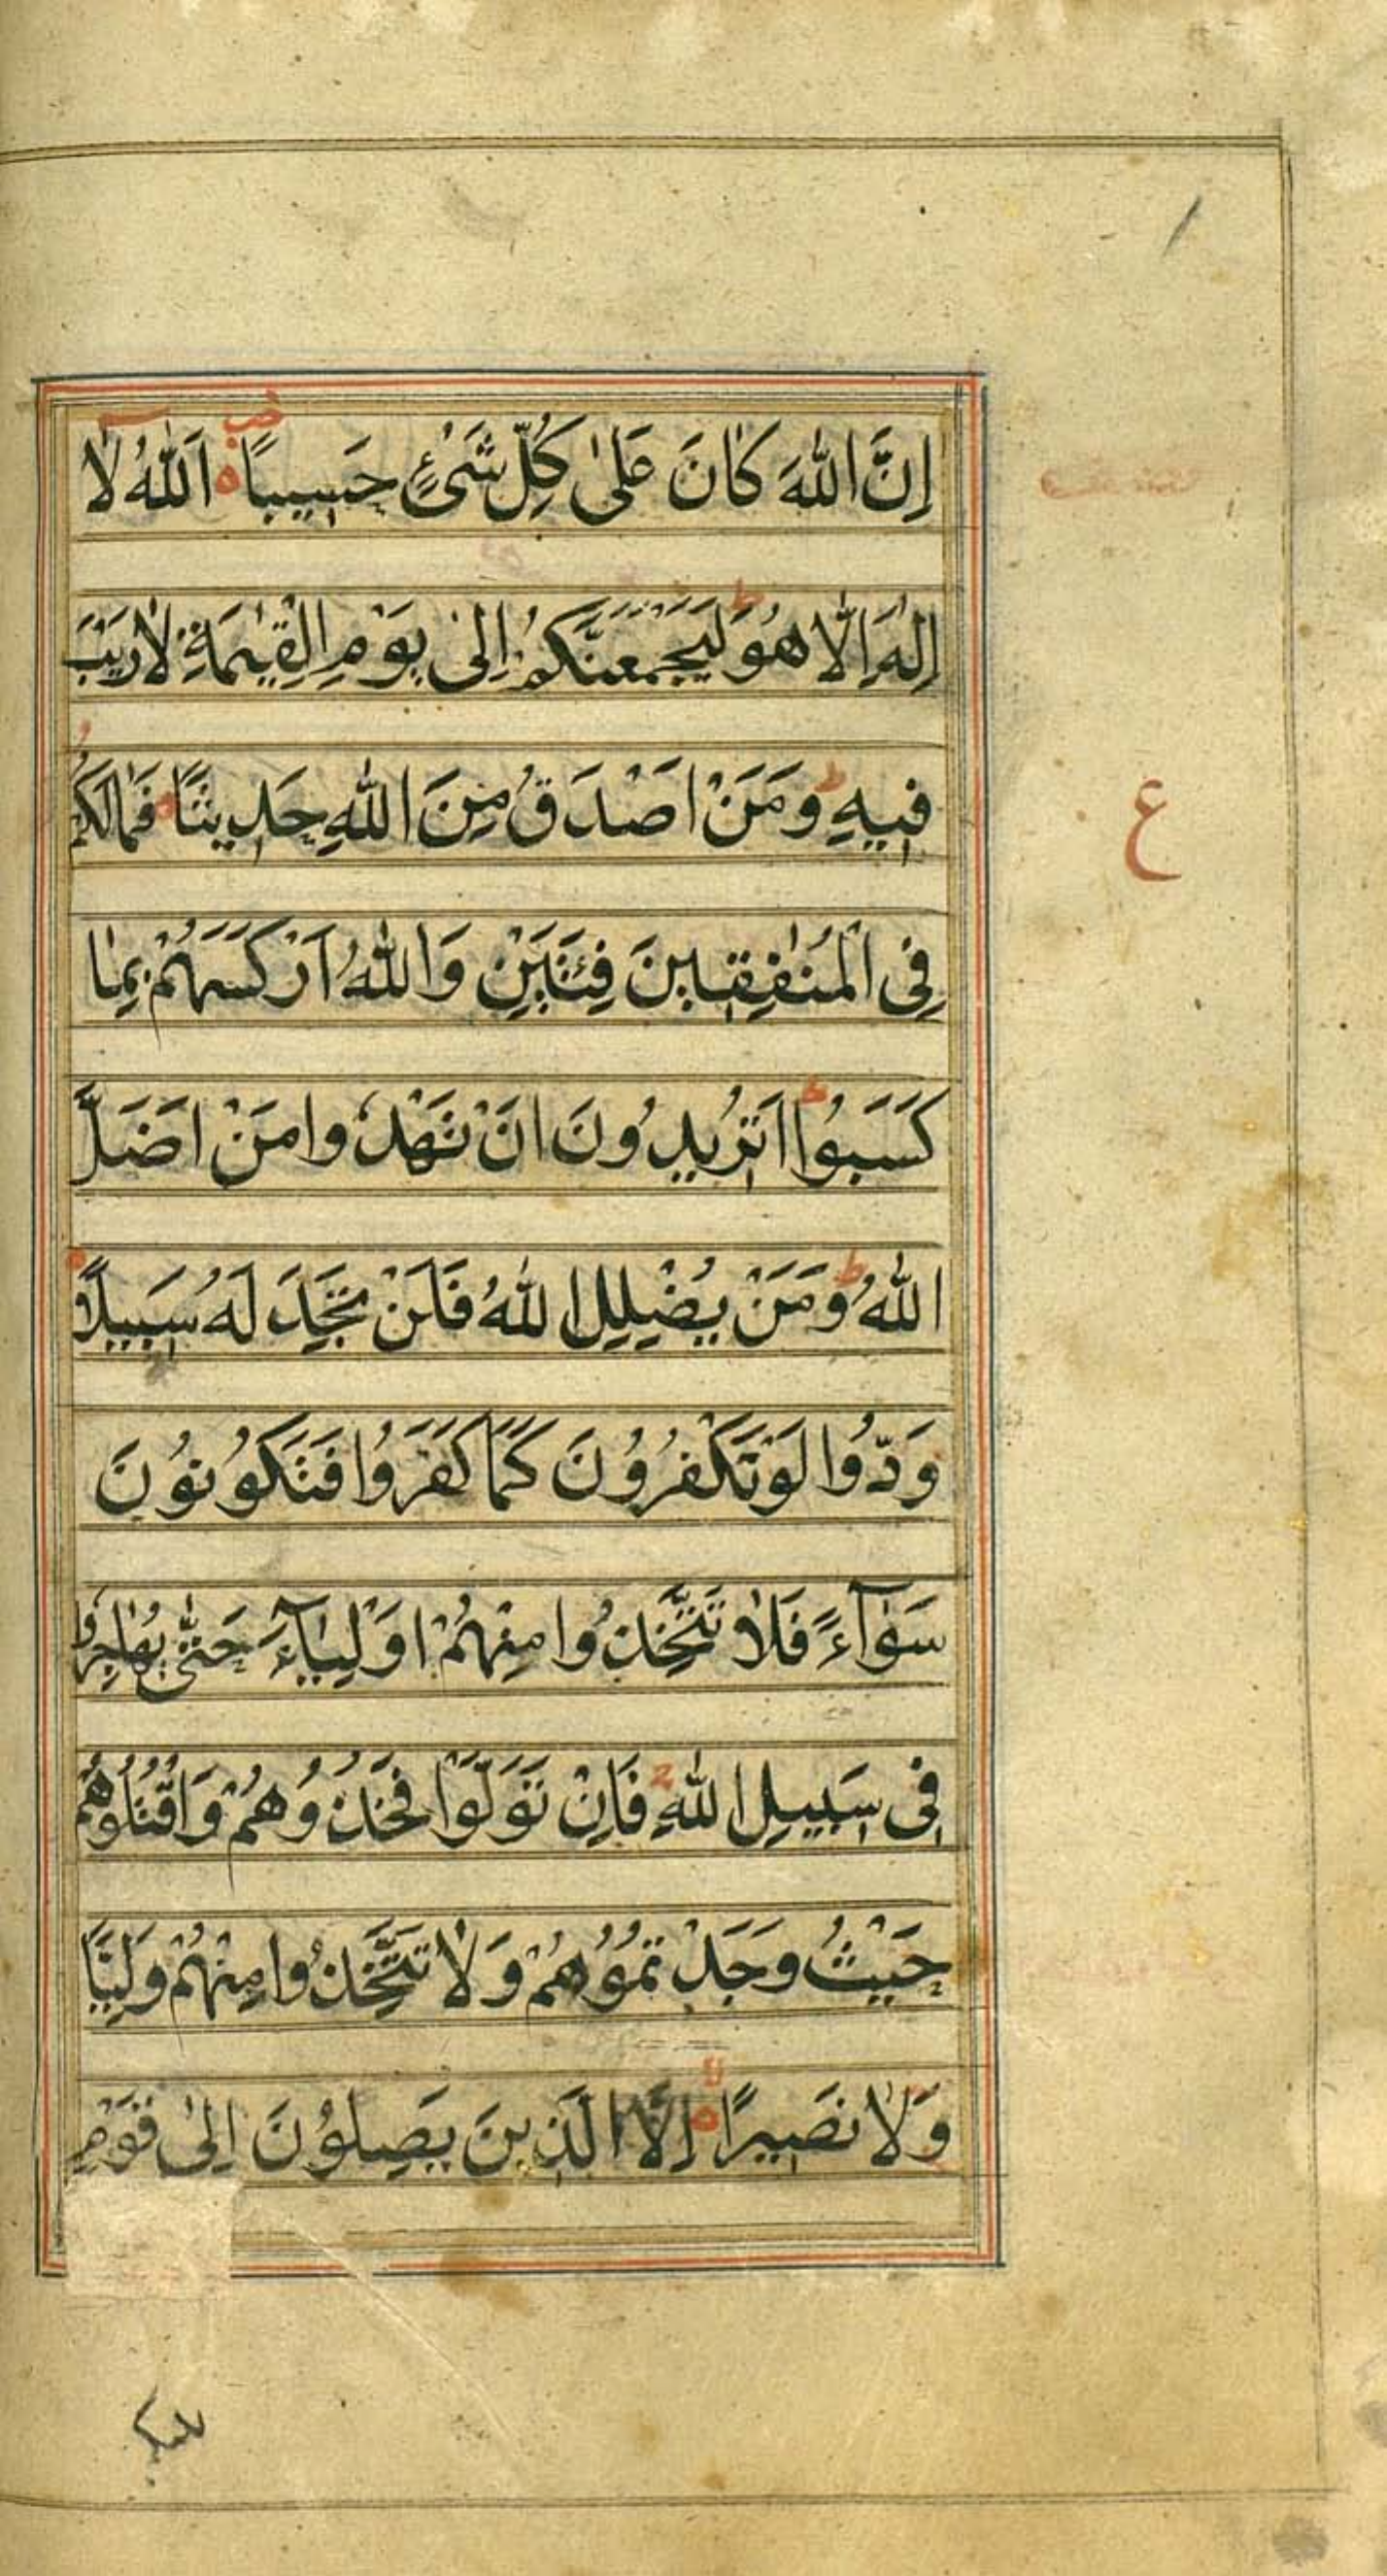 اِنَّ اللّٰهَ كَانَ عَلٰى كُلِّ شَىْءٍ حَسِيبًا اَللّٰهُ لَا
اِلٰهَ اِلَّا هُوَ لَيَجْمَعَنَّكُمْ اِلٰى يَوْمِ الْقِيٰمَةِ لَا رَيْبَ
فِيهِ وَمَنْ اَصْدَقُ مِنَ اللّٰهِ حَدِيثًا فَمَا لَكُمْ
ع
فِى الْمُنٰفِقِينَ فِئَتَيْنِ وَاللّٰهُ اَرْكَسَهُمْ بِمَا
كَسَبُوا اَتُرِيدُونَ اَنْ تَهْدُوا مَنْ اَضَلَّ
اللّٰهُ وَمَنْ يُضْلِلِ اللّٰهُ فَلَنْ تَجِدَ لَهُ سَبِيلًا
وَدُّوا لَوْ تَكْفُرُونَ كَمَا كَفَرُوا فَتَكُونُونَ
سَوَآءً فَلَا تَتَّخِذُوا مِنْهُمْ اَوْلِيَآءَ حَتّٰى يُهَاجِرُوا
فِى سَبِيلِ اللّٰهِ فَاِنْ تَوَلَّوْا فَخُذُوهُمْ وَاقْتُلُوهُمْ
حَيْثُ وَجَدْتُمُوهُمْ وَلَا تَتَّخِذُوا مِنْهُمْ وَلِيًّا
وَلَا نَصِيرًا اِلَّا الَّذِينَ يَصِلُونَ اِلٰى قَوْمٍ